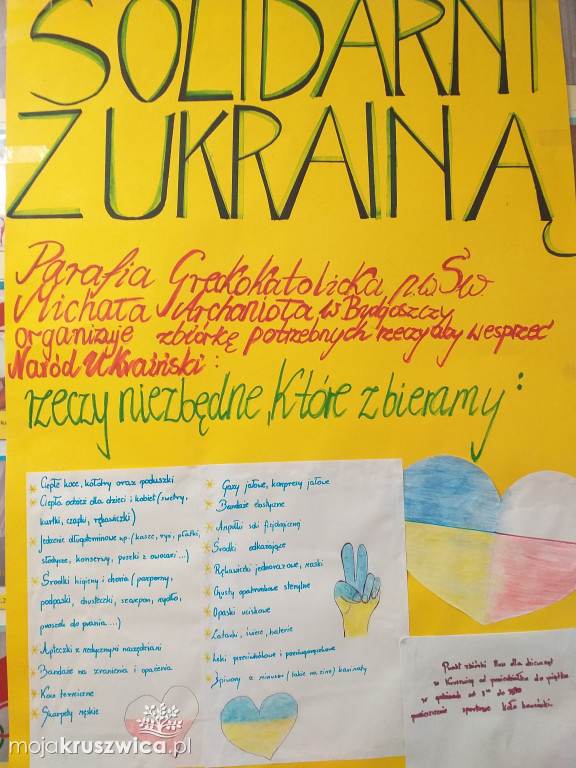 SOLIDARNI
Z UKRAINĄ
Parafia Greckokatolicka p.w. Św.
Michała Archanioła w Bydgoszczy
organizuje zbiórkę potrzebnych rzeczy aby wesprzeć
Naród Ukraiński:
rzeczy niezbędne, które zbieramy:
Ciepłe koce, kołdry oraz poduszki
Ciepła odzież dla dzieci i kobiet (swetry,
kurtki, czapki, rękawiczki)
Jedzenie długoterminowe np. (kasze, ryż, płatki,
słodycze, konserwy, puszki z owocami...)
Środki higieny i chemia (pampersy,
podpaski, chusteczki, szampon, mydło,
proszek do prania...)
Apteczki z medycznymi narzędziami
Bandaże na zranienia i oparzenia
Koce termiczne
Skarpety męskie
Gazy jałowe, kompresy jałowe
Bandaże elastyczne
Ampułki soli fizjologicznej
Środki odkażające
Rękawiczki jednorazowe, maski
Chusty opatrunkowe sterylne
Opaski uciskowe
Latarki, świece, baterie
Leki przeciwbólowe i przeciwgorączkowe
Śpiwory z minusem (takie na zimę) karimaty
Punkt zbiórki
w Kruszwicy od poniedziałku do piątku
w godzinach od
pomieszczenie sportowe
mojakruszwica.pl